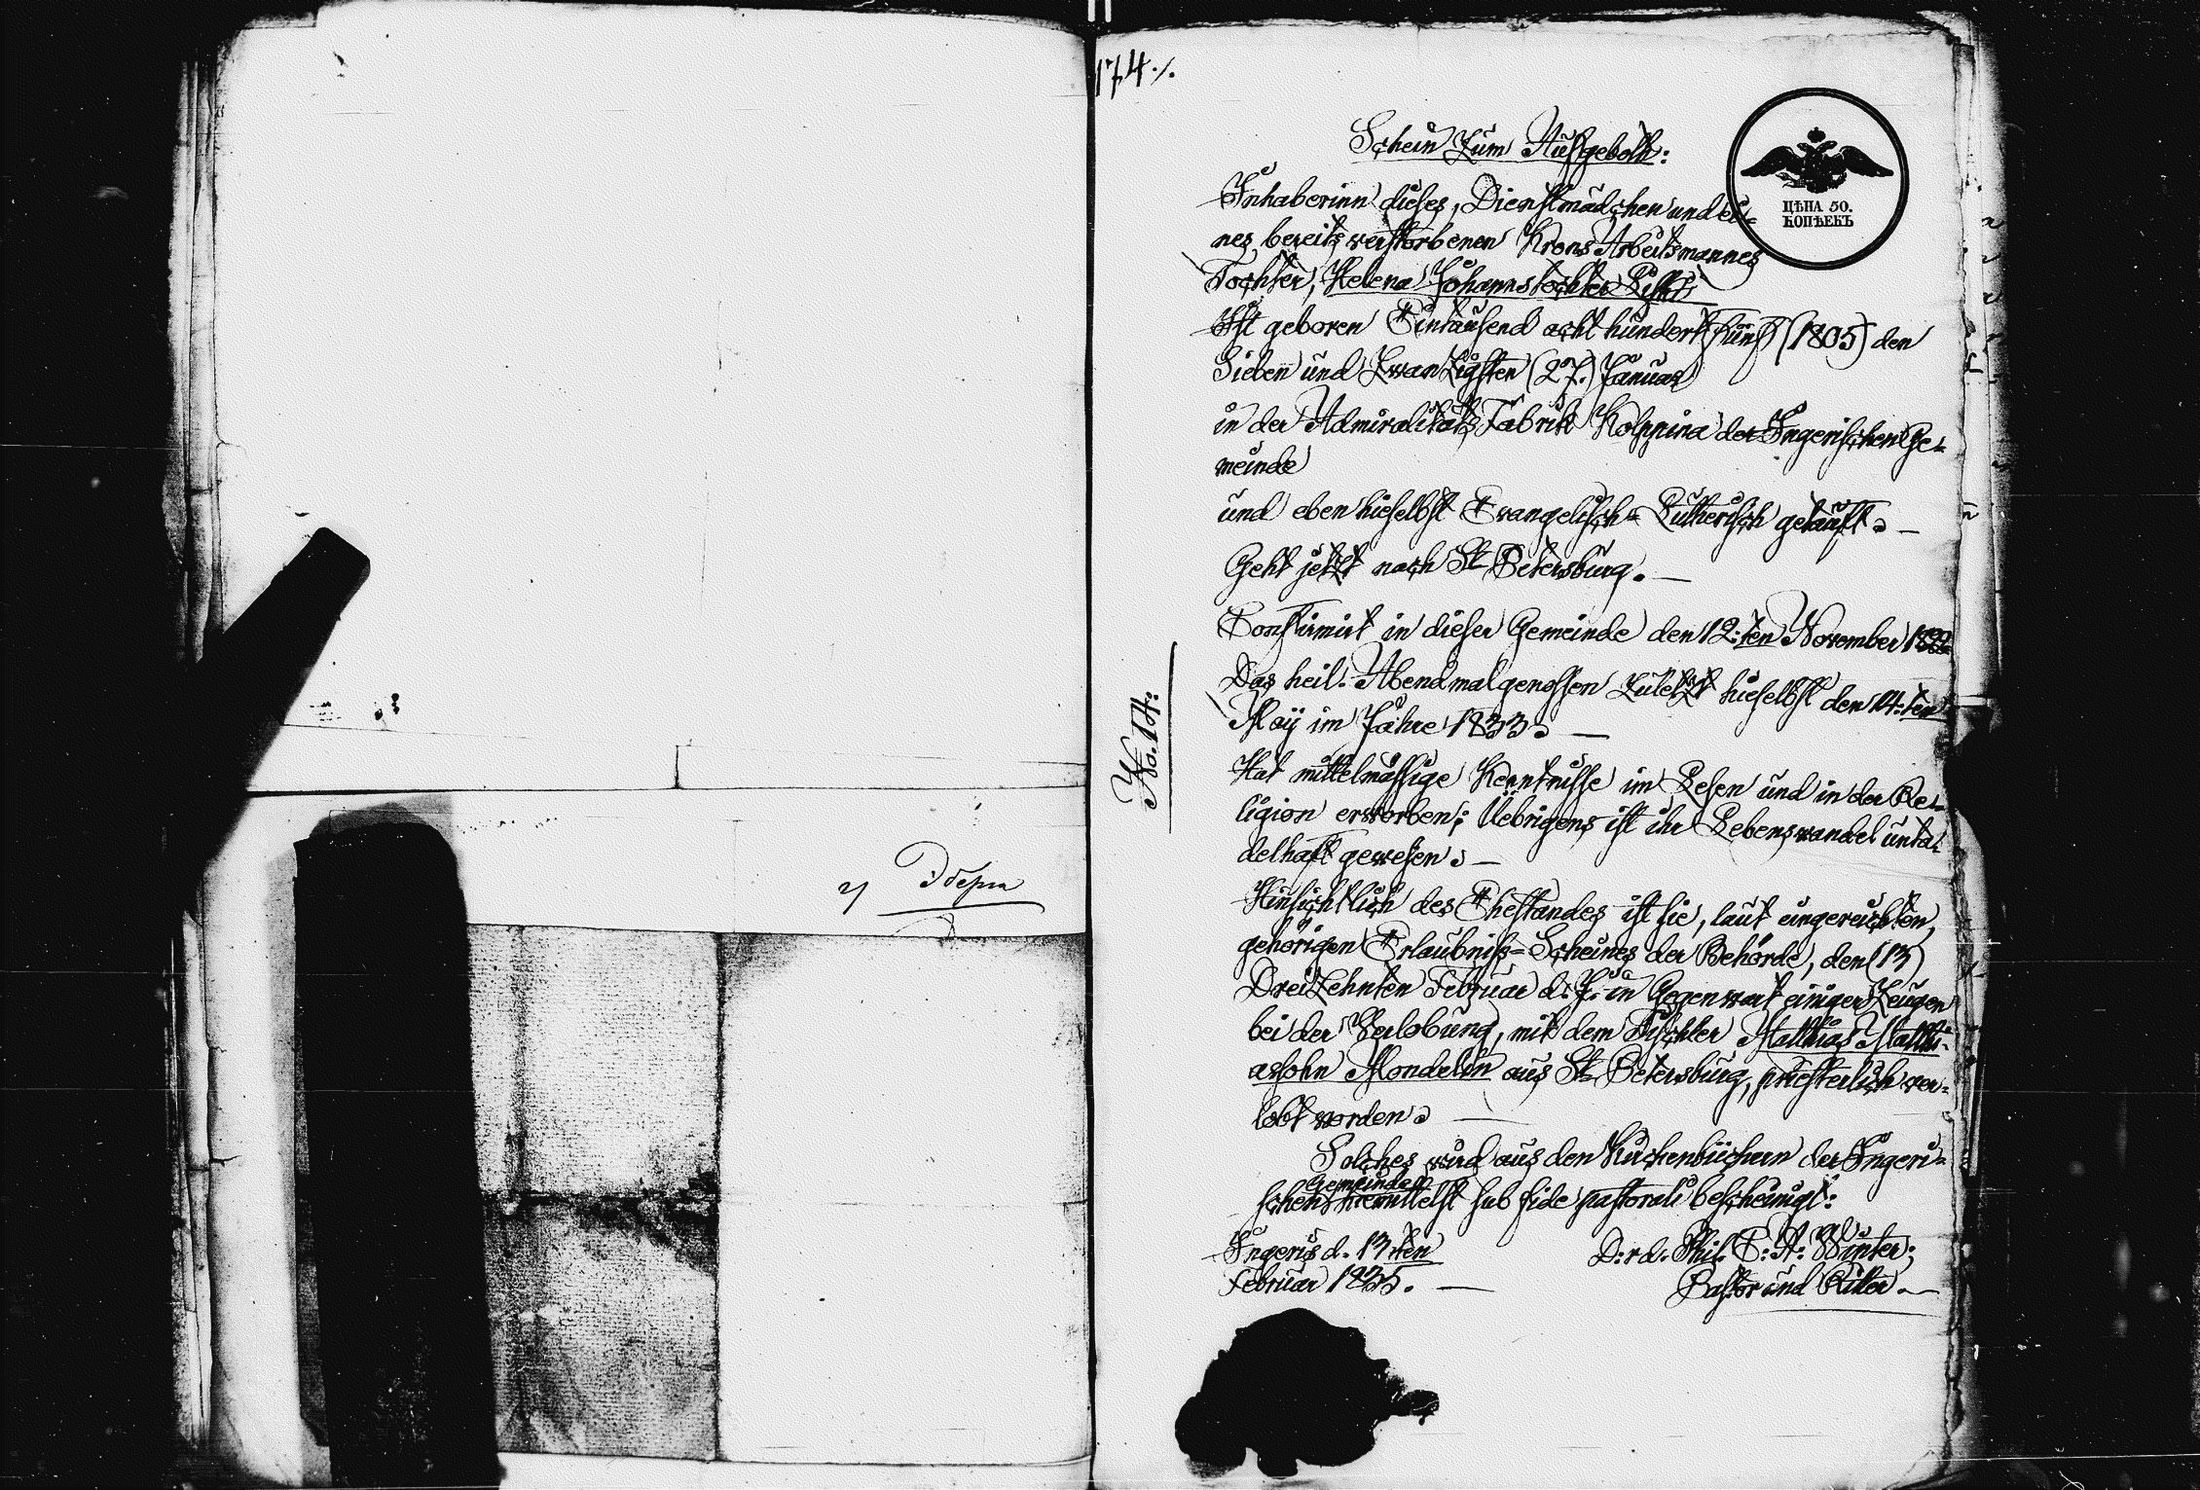 174./.
Schein zum Aufgeboth:
ЦѢНА 50.
КОПѢЕКЪ
Inhaberinn dieses, Dienstmädchen und ei-
nes bereits verstorbenen Krons Arbeitsmannes
Tochter, Helena Johannstochter
Ist geboren Eintausend acht hundert fünf (1805) den
Sieben und Zwanzigsten (27.) Januar
in der Admiralitäts Fabrik Kolppina der Ingerischen Ge-
meinde
und eben hieselbst Evangelisch-Lutherisch getauft. —
Geht jetzt nach St. Petersburg. —
Confirmirt in dieser Gemeinde den 12:ten November
Das heil. Abendmal genossen zuletzt hieselbst den 14:ten
May im Jahre 1833. —
No. 14:
Hat mittelmässige Kenntnisse im Lesen und in der Re-
ligion erworben; Uebrigens ist ihr Lebenswandel unta-
delhaft gewesen. —
Hinsichtlich des Ehestandes ist sie, laut eingereichten,
gehörigen Erlaubniss-Scheines der Behörde, den (13)
Dreizehnten Februar d. J. in Gegenwart einiger Zeugen
bei der Verlobung, mit dem Tischler Matthias Matthi-
assohn Mondelin aus St. Petersburg, priesterlich ver-
lobt worden. —
Solches wird aus den Kirchenbüchern der Ingeri-
Gemeinde
schen hiemittelst sub fide pastorali bescheinigt:
Ingeris d. 13:ten
Februar 1835. —
D:r d. Phil. C: A: Winter;
Pastor und Ritter. —